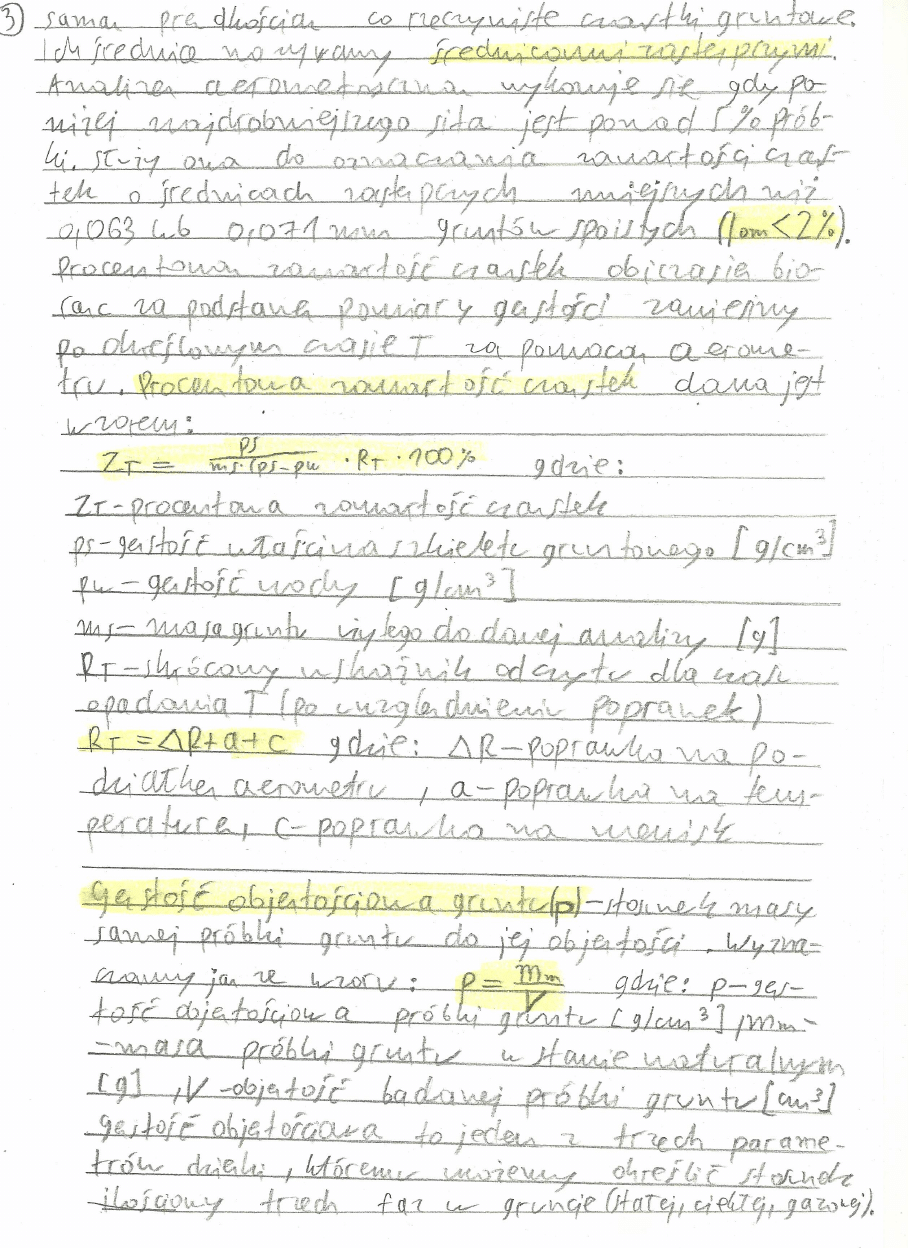 3) samą prędkością co rzeczywiste cząstki gruntowe.
Ich średnicę nazywamy średnicami zastępczymi.
Analiza aerometryczna wykonuje się gdy po-
niżej najdrobniejszego sita jest ponad 5% prób-
ki. Służy ona do oznaczania zawartości cząs-
tek o średnicach zastępczych mniejszych niż
0,063 lub 0,071 mm gruntów spoistych (Iom<2%).
Procentową zawartość cząstek oblicza się bio-
rąc za podstawę pomiary gęstości zawiesiny
po określonym czasie T za pomocą aerome-
tru. Procentowa zawartość cząstek dana jest
wzorem:
ZT = ps / ms·(ps-pw · RT · 100% gdzie:
ZT-procentowa zawartość cząstek
ps-gęstość właściwa szkieletu gruntowego [g/cm³]
pw-gęstość wody [g/cm³]
ms-masa gruntu użytego do danej analizy [g]
RT-skrócony wskaźnik odczytu dla czasu
opadania T (po uwzględnieniu poprawek)
RT = ΔR+a+c gdzie: ΔR-poprawka na po-
działkę aerometru, a-poprawka na tem-
peraturę, c-poprawka na menisk
Gęstość objętościowa gruntu(p)-stosunek masy
samej próbki gruntu do jej objętości. Wyzna-
czamy ją ze wzoru: p= mm/V gdzie: p-gęs-
tość objętościowa próbki gruntu [g/cm³], mm-
-masa próbki gruntu w stanie naturalnym
[g], V-objętość badanej próbki gruntu [cm³]
Gęstość objętościowa to jeden z trzech parame-
trów dzięki, któremu możemy określić stosunek
ilościowy trzech faz w gruncie (stałej, ciekłej, gazowej).